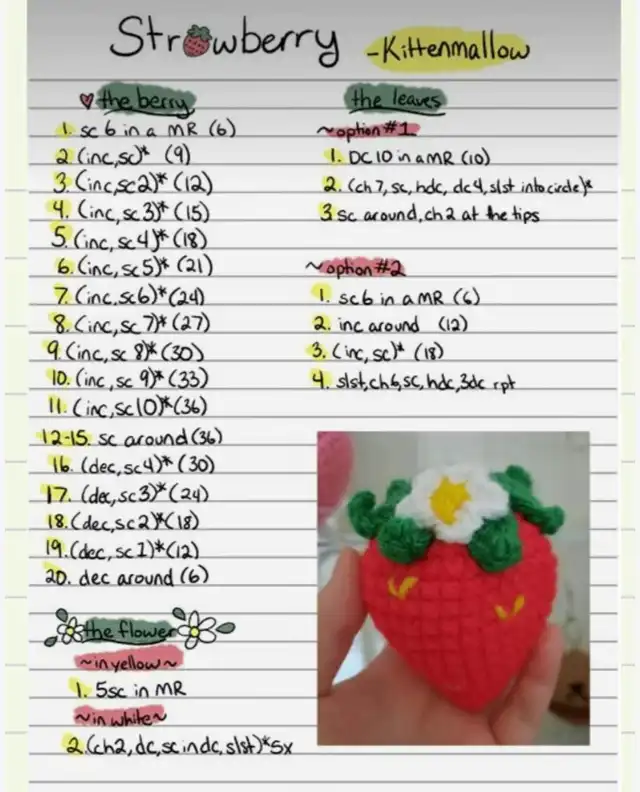 Strawberry - Kittenmallow
the berry
1. sc 6 in a MR (6)
2. (inc, sc)* (9)
3. (inc, sc2)* (12)
4. (inc, sc3)* (15)
5. (inc, sc4)* (18)
6. (inc, sc5)* (21)
7. (inc, sc6)* (24)
8. (inc, sc7)* (27)
9. (inc, sc 8)* (30)
10. (inc, sc 9)* (33)
11. (inc, sc10)* (36)
12-15. sc around (36)
16. (dec, sc4)* (30)
17. (dec, sc3)* (24)
18. (dec, sc2)* (18)
19. (dec, sc1)* (12)
20. dec around (6)
the flower
~in yellow~
1. 5sc in MR
~in white~
2. (ch2, dc, sc in dc, slst)* 5x
the leaves
~option #1
1. DC 10 in a MR (10)
2. (ch 7, sc, hdc, dc4, slst into circle)*
3 sc around, ch 2 at the tips
~option #2
1. sc6 in a MR (6)
2. inc around (12)
3. (inc, sc)* (18)
4. slst, ch6, sc, hdc, 3dc rpt